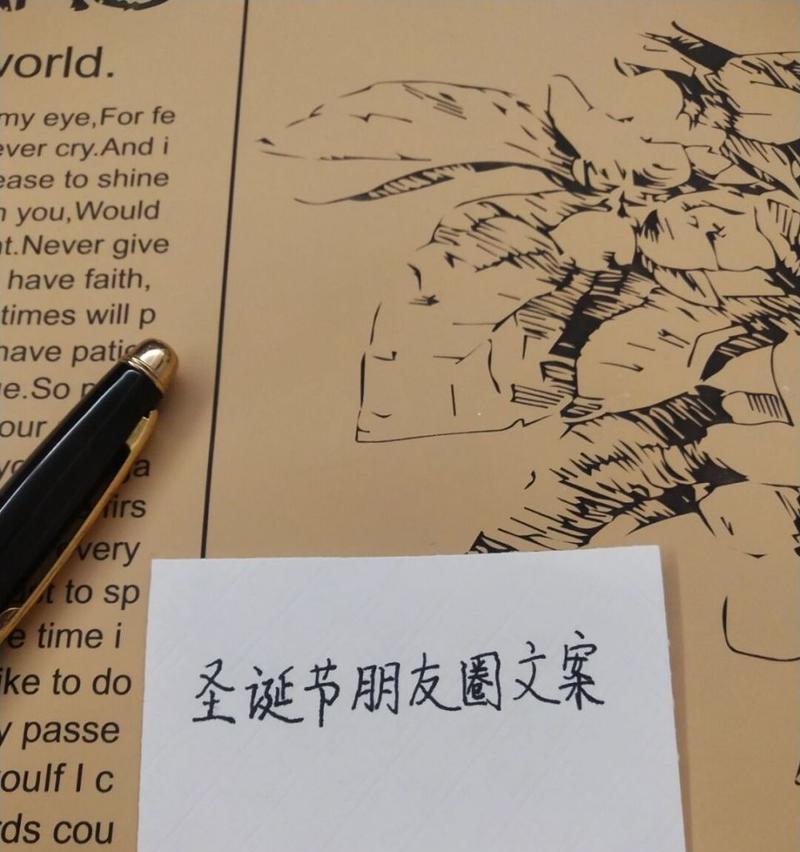 world.
my eye,For fe
ever cry.And i
ease to shine
you,Would
Never give
have faith,
times will p
have
So
our
firs
very
to sp
time i
ike to do
y passe
oulf I c
rds cou
圣诞节朋友圈文案